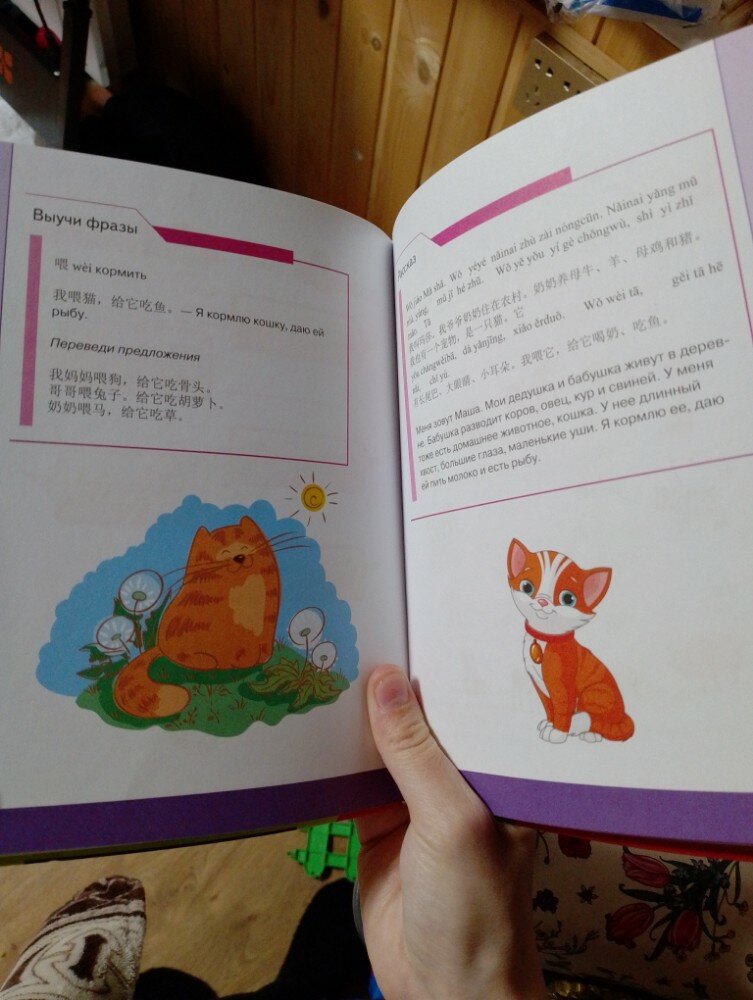 Выучи фразы
喂 wèi кормить
我喂猫，给它吃鱼。— Я кормлю кошку, даю ей
рыбу.
Переведи предложения
我妈妈喂狗，给它吃骨头。
哥哥喂兔子。给它吃胡萝卜。
奶奶喂马，给它吃草。
Рассказ
Wǒ jiào Mǎ shā. Wǒ yéyé nǎinai zhù zài nóngcūn. Nǎinai yǎng mǔ
niú, yáng, mǔ jī hé zhū. Wǒ yě yǒu yí gè chǒngwù, shì yì zhī
māo Tā
我叫玛莎。我爷爷奶奶住在农村。奶奶养母牛、羊、母鸡和猪。
我也有一个宠物，是一只猫。它
yǒu chángwěibā, dà yǎnjīng, xiǎo ěrduǒ. Wǒ wèi tā, gěi tā hē
nǎi, chī yú.
有长尾巴、大眼睛、小耳朵。我喂它，给它喝奶、吃鱼。
Меня зовут Маша. Мои дедушка и бабушка живут в дерев-
не. Бабушка разводит коров, овец, кур и свиней. У меня
тоже есть домашнее животное, кошка. У нее длинный
хвост, большие глаза, маленькие уши. Я кормлю ее, даю
ей пить молоко и есть рыбу.